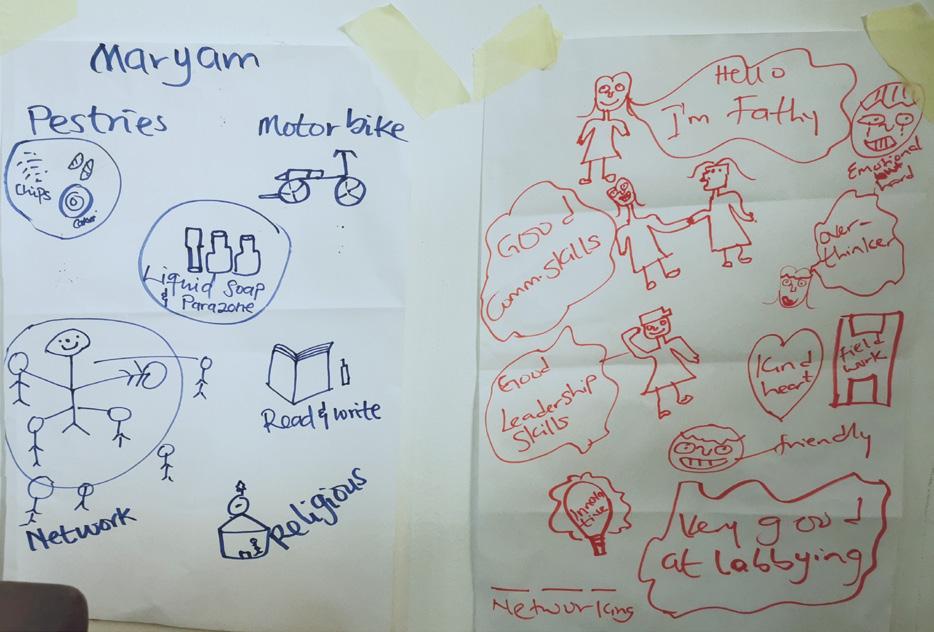 Maryam
Pestries
Motorbike
Chips
Liquid Soap
& Parazone
Read & write
Network
Religious
Hello
I'm Fathy
Emotional
hard
Good
Comm. skills
over-
thinker
Good
Leadership
Skills
Kind
heart
Field
work
friendly
Innova
tive
Very good
at labbying
Networking